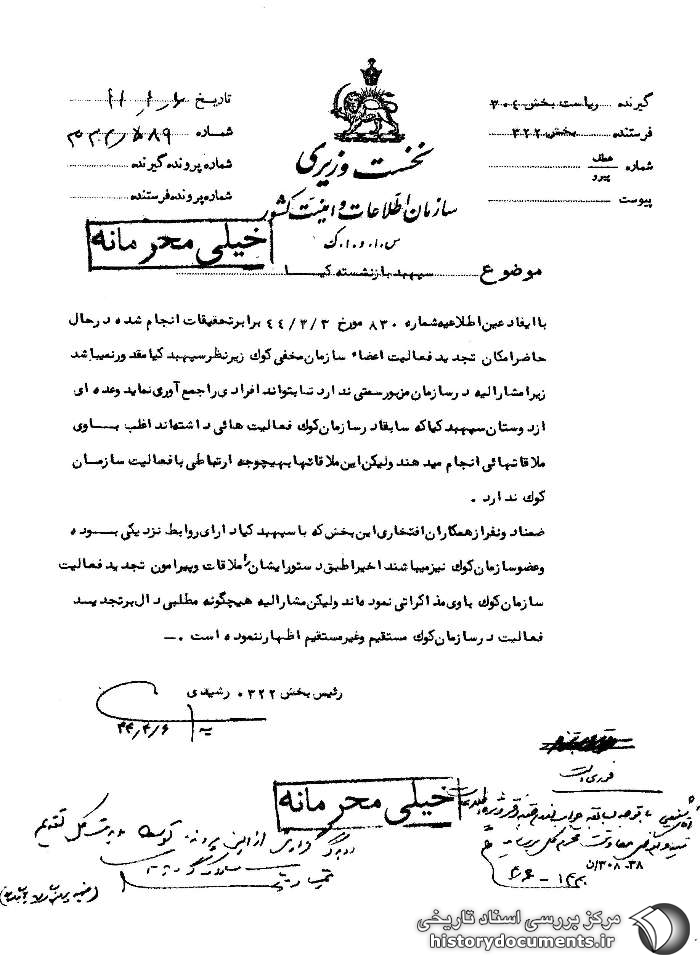 گیرنده ریاست بخش ۳۰۴
فرستنده بخش ۳۲۲
شماره عطف پیرو
پیوست
نخست وزیری
سازمان اطلاعات و امنیت کشور
س.ا.و.ا.ک
تاریخ
شماره
شماره پرونده گیرنده
شماره پرونده فرستنده
خیلی محرمانه
موضوع سپهبد بازنشسته کیا
با ایفاد عین اطلاعیه شماره ۸۳۰ مورخ ۴۴/۲/۳ برابر تحقیقات انجام شده در حال
حاضر امکان تجدید فعالیت اعضاء سازمان مخفی کوک زیر نظر سپهبد کیا مقدور نمیباشد
زیرا مشارالیه در سازمان مزبور سمتی ندارد تا بتواند افرادی را جمع آوری نماید وعده ای
از دوستان سپهبد کیا که سابقا در سازمان کوک فعالیت هائی داشته اند اغلب با وی
ملاقاتهائی انجام میدهند ولیکن این ملاقاتها بهیچوجه ارتباطی با فعالیت سازمان
کوک ندارد .
ضمنا دو نفر از همکاران افتخاری این بخش که با سپهبد کیا دارای روابط نزدیکی بوده
وعضو سازمان کوک نیز میباشند اخیرا طبق دستور ایشان را ملاقات وپیرامون تجدید فعالیت
سازمان کوک با وی مذاکراتی نموده اند ولیکن مشارالیه هیچگونه مطلبی دال بر تجدید
فعالیت در سازمان کوک مستقیم وغیر مستقیم اظهار ننموده است .ـ
رئیس بخش ۳۲۲ . رشیدی
۴۴/۲/۶
خیلی محرمانه
مرکز بررسی اسناد تاریخی
historydocuments.ir